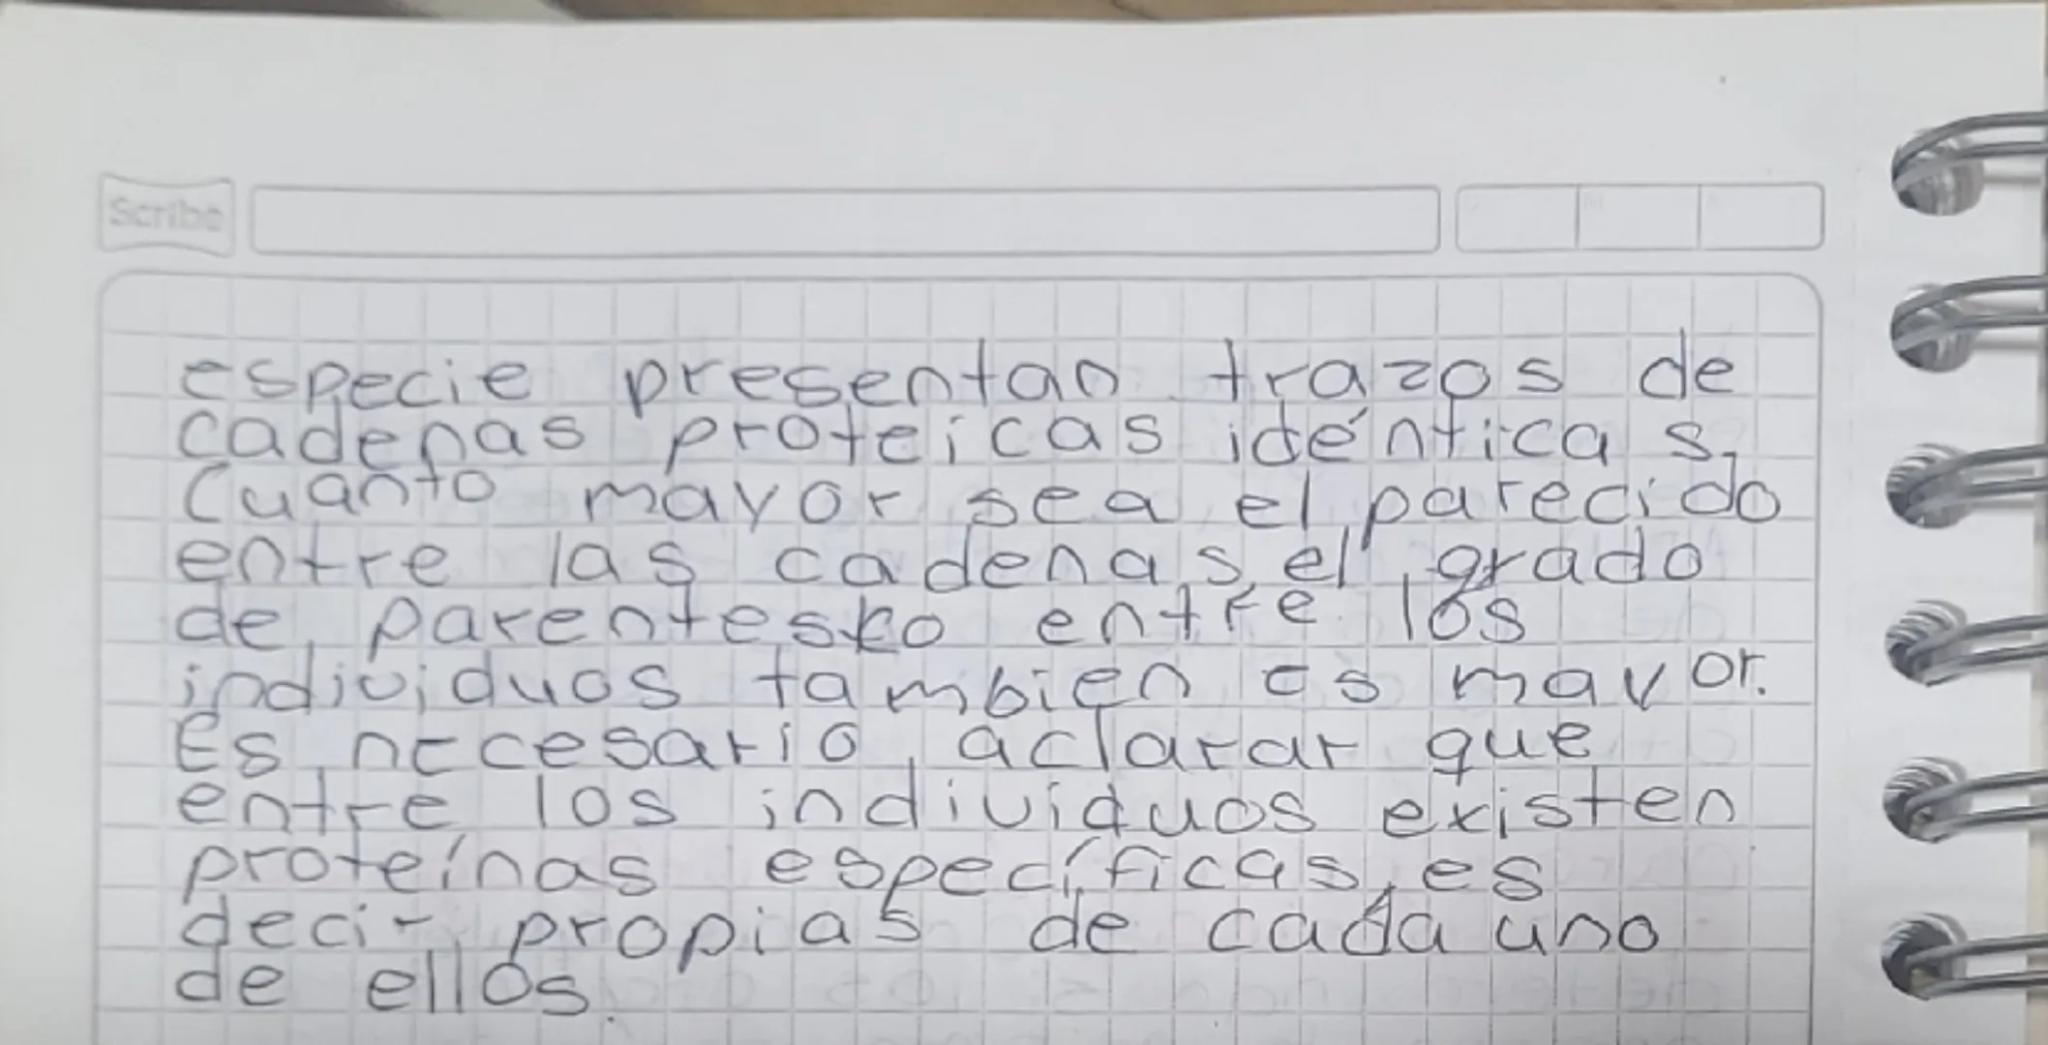 Scribe
especie presentan trazos de
cadenas proteicas idénticas,
Cuanto mayor sea el parecido
entre las cadenas, el grado
de parentesko entre los
individuos tambien es mayor.
Es necesario aclarar que
entre los individuos existen
proteínas específicas, es
decir propias de cada uno
de ellos.